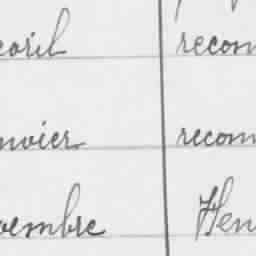 avril recon
nvier recon
vembre Hen